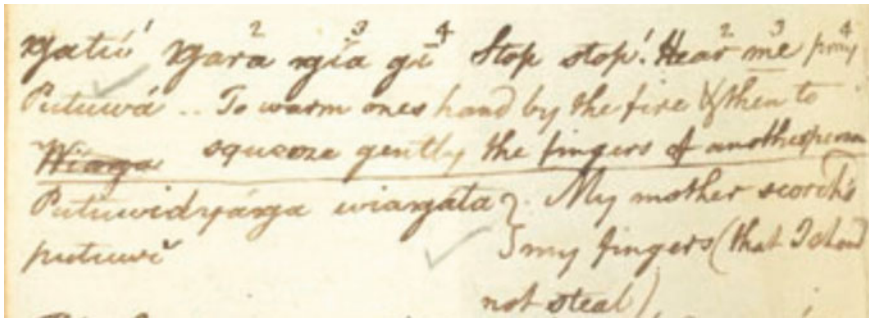 Ŋatiú Ŋara ŋía gī Stop stop! Hear me
Putuwá .. To warm ones hand by the fire & then to
squeeze gently the fingers of another person
Putuwidyáŋa wiaŋata My mother scorch's
putuwī my fingers (that I shoud
not steal)